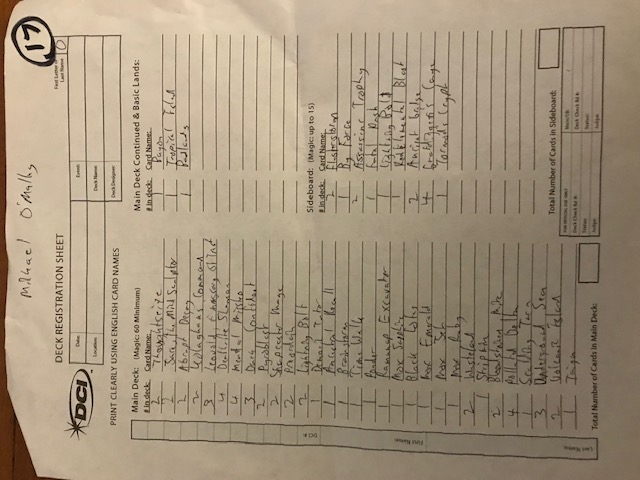 Michael O'Malley
17
DCI
DECK REGISTRATION SHEET
First Letter of
Last Name
O
Date:
Event:
Location:
Deck Name:
Deck Designer:
PRINT CLEARLY USING ENGLISH CARD NAMES
Main Deck: (Magic: 60 Minimum)
# in deck: Card Name:
2 Thoughtseize
2 Jace, the Mind Sculptor
2 Abrupt Decay
2 Kolaghans Command
3 Leovold, Emissary of Trest
4 Deathrite Shaman
4 Mental Misstep
3 Dark Confidant
2 Pyroblast
2 Snapcaster Mage
2
2 Lightning Bolt
1 Demonic Tutor
1 Ancestral Recall
1 Brainstorm
1 Time Walk
1 Ponder
1 Ramunap Excavator
1 Mox Sapphire
1 Black Lotus
1 Mox Emerald
1 Mox Jet
1 Mox Ruby
2 Wasteland
1 Strip Mine
2 Bloodstained Mire
4 Polluted Delta
1 Scalding Tarn
3 Underground Sea
2 Volcanic Island
1 Taiga
Total Number of Cards in Main Deck:
Main Deck Continued & Basic Lands:
# in deck: Card Name:
1 Bayou
1 Tropical Island
1 Badlands
Sideboard: (Magic: up to 15)
# in deck: Card Name:
2 Flusterstorm
1 By Force
2 Assassins Trophy
1 Fatal Push
1 Lightning Bolt
1 Red Elemental Blast
2 Ancient Grudge
4 Grafdiggers Cage
1 Tormods Crypt
Total Number of Cards in Sideboard:
FOR OFFICIAL USE ONLY
Main/SB:
Deck Check Rd #:
Deck Check Rd #:
Status:
Status:
Judge:
Judge:
DCI #:
First Name:
Last Name: